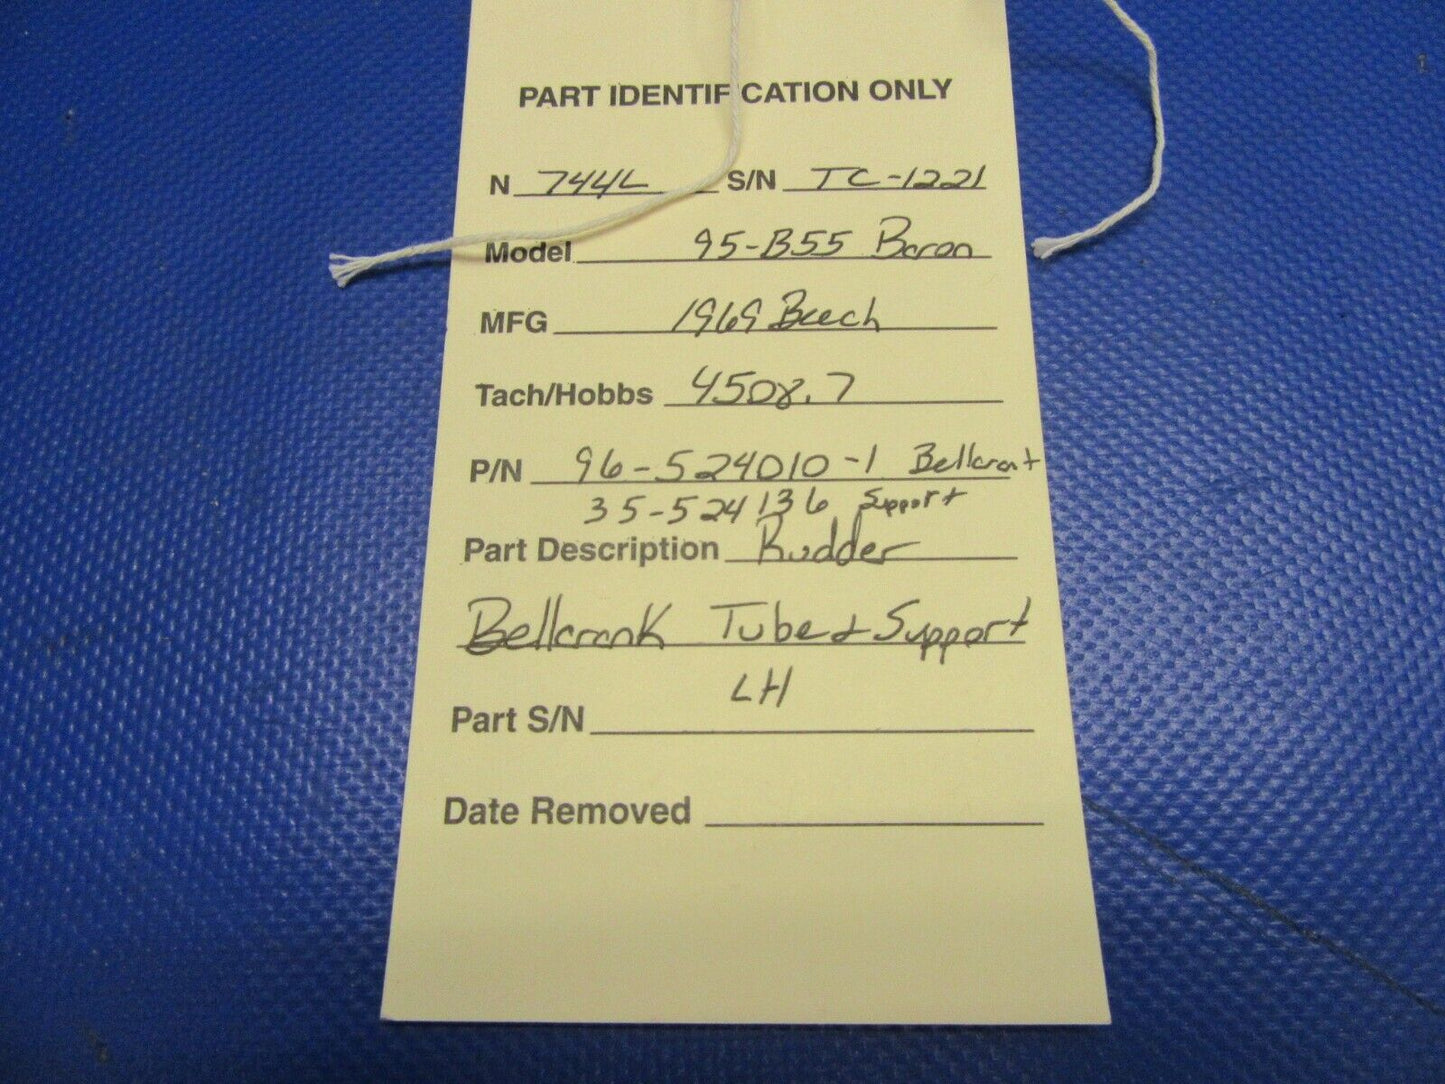 PART IDENTIFICATION ONLY
N 744L S/N TC-1221
Model 95-B55 Baron
MFG 1969 Beech
Tach/Hobbs 4508.7
P/N 96-524010-1 Bellcrant
35-524136 Support
Part Description Rudder
Bellcrank Tube & Support
LH
Part S/N
Date Removed